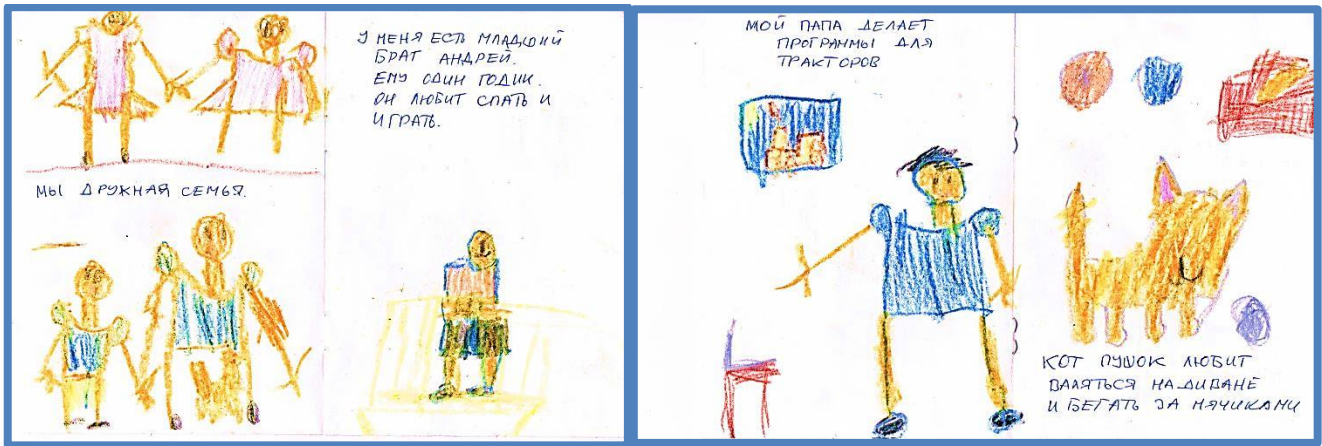 МЫ ДРУЖНАЯ СЕМЬЯ.
У МЕНЯ ЕСТЬ МЛАДШИЙ
БРАТ АНДРЕЙ.
ЕМУ ОДИН ГОДИК.
ОН ЛЮБИТ СПАТЬ И
ИГРАТЬ.
МОЙ ПАПА ДЕЛАЕТ
ПРОГРАММЫ ДЛЯ
ТРАКТОРОВ
КОТ ПУШОК ЛЮБИТ
ВАЛЯТЬСЯ НА ДИВАНЕ
И БЕГАТЬ ЗА МЯЧИКАМИ